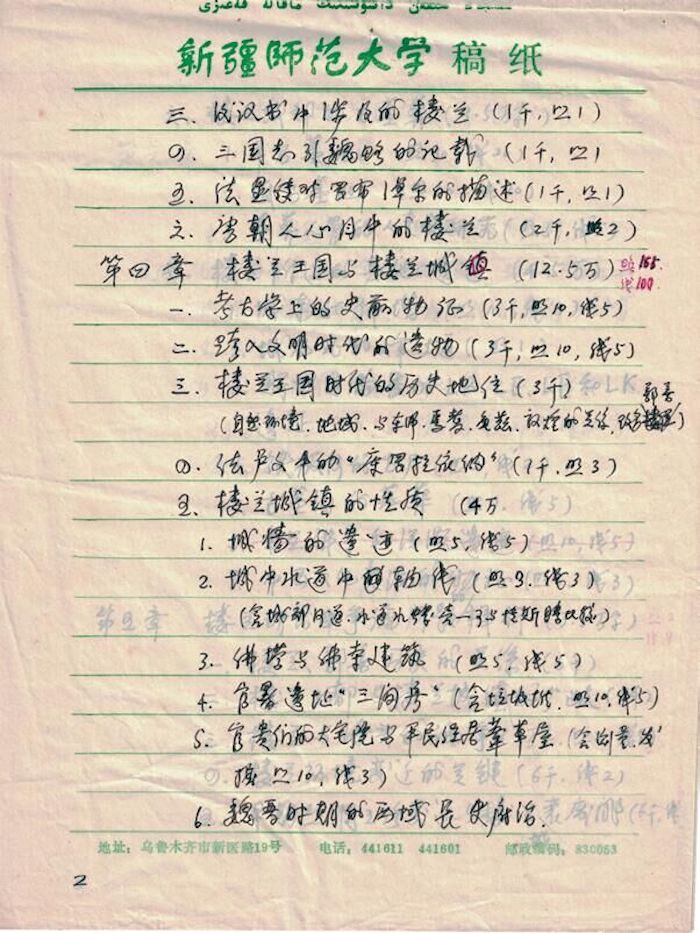 新疆师范大学 稿纸
三、后汉书中涉及的楼兰（1千，照1）
四、三国志引魏略的记载（1千，照1
五、法显经对罗布淖尔的描述（1千，照1）
六、唐朝人心目中的楼兰（2千，照2）
第四章 楼兰王国与楼兰城镇（12.5万）照155.
线100.
一、考古学上的史前物证（3千，照10，线5）
二、跨入文明时代的遗物（3千，照10，线5）
三、楼兰王国时代的历史地位（3千）
（自然环境、地域、与车师、焉耆、龟兹、敦煌的关系、鄯善
四、佉卢文中的“库罗拉依纳”（1千，照3）
五、楼兰城镇的性质（4万
1. 城墙的遗迹（照5，线5）
2. 城中水道中轴线（照3，线3）
3. 佛塔与佛寺建筑（照5，线5）
4. 官署遗址“三间房”（含垃圾坑，照10，线5）
5. 官贵们的大宅院与平民住居苇草屋（含
掘照10，线3）
6. 魏晋时期的西域长史府治.
地址：乌鲁木齐市新医路19号 电话：441611 441601 邮政编码：830053
2